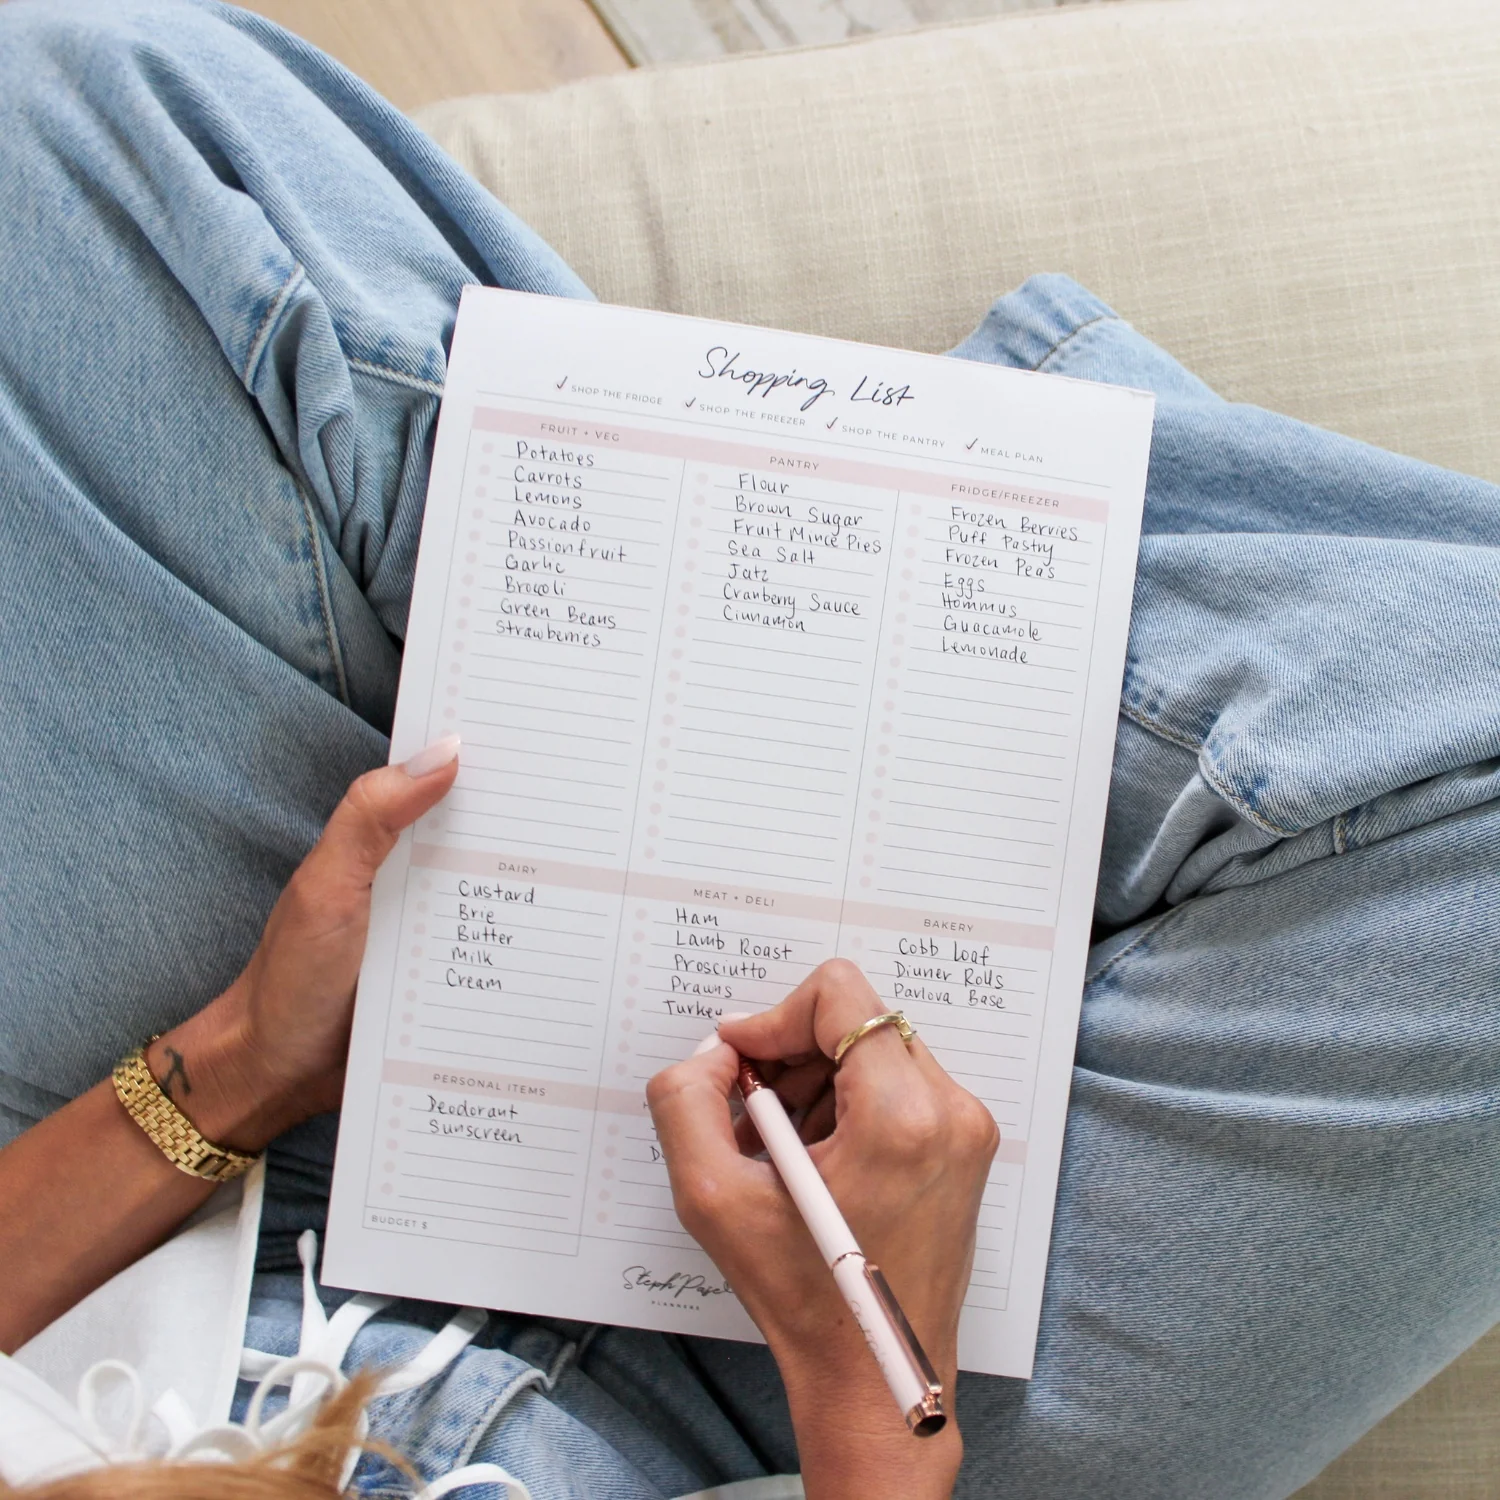 Shopping List
SHOP THE FRIDGE
SHOP THE FREEZER
SHOP THE PANTRY
MEAL PLAN
FRUIT + VEG
Potatoes
Carrots
Lemons
Avocado
Passionfruit
Garlic
Brocoli
Green Beans
Strawberries
PANTRY
Flour
Brown Sugar
Fruit Mince Pies
Sea Salt
Jatz
Cranberry Sauce
Cinnamon
FRIDGE/FREEZER
Frozen Berries
Puff Pastry
Frozen Peas
Eggs
Hommus
Guacamole
Lemonade
DAIRY
Custard
Brie
Butter
Milk
Cream
MEAT + DELI
Ham
Lamb Roast
Prosciutto
Prawns
Turkey
BAKERY
Cobb Loaf
Dinner Rolls
Pavlova Base
PERSONAL ITEMS
Deodorant
Sunscreen
BUDGET $
Steph Pase
PLANNERS